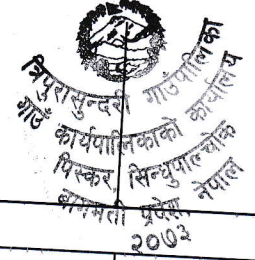 त्रिपुरासुन्दरी गाउँपालिका
गाउँ कार्यपालिकाको कार्यालय
पिस्कर सिन्धुपाल्चोक
बागमती प्रदेश नेपाल
२०७३